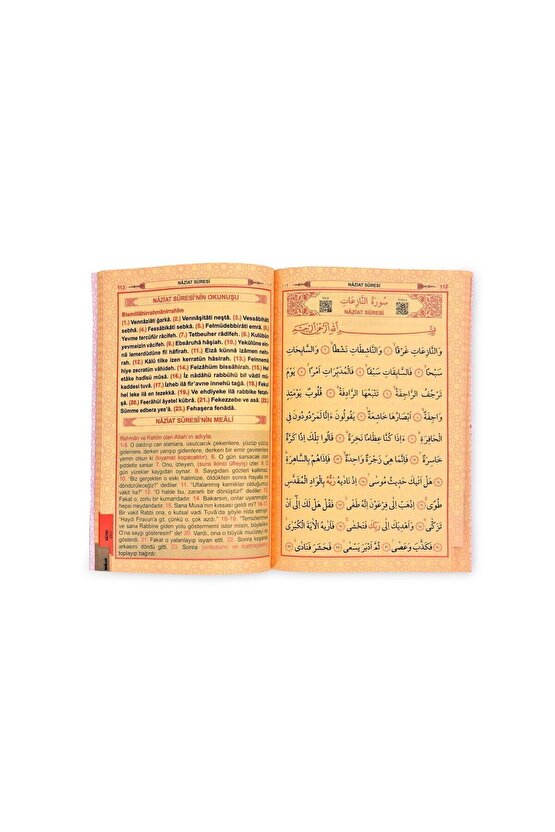 113
NÂZİAT SÛRESİ
NÂZİAT SÛRESİ'NİN OKUNUŞU
Bismillâhirrahmânirrahîm
(1.) Vennâziâti ğarkâ. (2.) Vennâşitâti neştâ. (3.) Vessâbihâti
sebhâ. (4.) Fessâbikâti sebkâ. (5.) Felmüdebbirâti emrâ. (6.)
Yevme tercüfür râcifeh. (7.) Tetbeuher râdifeh. (8.) Kulûbüy
yevmeizin vâcifeh. (9.) Ebsâruhâ hâşiah. (10.) Yekûlûne ein-
nâ lemerdûdûne fil hâfirah. (11.) Eizâ künnâ izâmen neh-
rah. (12.) Kâlû tilke izen kerratün hâsirah. (13.) Feinnemâ
hiye zecratün vâhideh. (14.) Feizâhüm bissâhirah. (15.) Hel
etâke hadîsü mûsâ. (16.) İz nâdâhü rabbühû bil vâdil mü-
kaddesi tuvâ. (17.) İzheb ilâ fir'avne innehû tağâ. (18.) Fekul
hel leke ilâ en tezekkâ. (19.) Ve ehdiyeke ilâ rabbike fetahşâ.
(20.) Feerâhül âyetel kübrâ. (21.) Fekezzebe ve asâ. (22.)
Sümme edbera yes'â. (23.) Fehaşera fenâdâ.
NÂZİAT SÛRESİ'NİN MEÂLİ
Rahmân ve Rahîm olan Allah'ın adıyla.
1-5. O daldırıp can alanlara, usulcacık çekenlere, yüzüp yüzüp
gidenlere, derken yarışıp geçenlere, derken bir emir çevirenlere
yemin olsun ki (kıyamet kopacaktır). 6. O gün sarsacak olan
şiddetle sarsar. 7. Onu, izleyen, (sura ikinci üfleyiş) izler. 8. O
gün yürekler kaygıdan oynar. 9. Saygıdan gözleri kalkmaz.
10. "Biz gerçekten o eski halimize, öldükten sonra hayata mı
döndürüleceğiz?" dediler. 11. "Ufalanmış kemikler olduğumuz
vakit ha?" 12. "O halde bu, zararlı bir dönüştür" dediler. 13.
Fakat o, zorlu bir kumandadır. 14. Bakarsın, onlar uyanmışlar,
hepsi meydandadır. 15. Sana Musa'nın kıssası geldi mi? 16-17.
Bir vakit Rabbi ona, o kutsal vadi Tuvâ'da şöyle nida etmişti:
"Haydi Firavun'a git, çünkü o, çok azdı." 18-19. "Temizlenmek
ister misin, Rabbine giden yolu göstermemi ister misin, böylelikle
O'na saygı gösteresin" de! 20. Vardı, ona o büyük mucizeyi
gösterdi. 21. Fakat o yalanlayıp isyan etti. 22. Sonra koşarak
arkasını döndü gitti. 23. Sonra (ordusunu ve kavmini)
toplayıp bağırdı:
NÂZİAT SÛRESİ
112
سُورَةُ النَّازِعَاتِ
NÂZİAT SÛRESİ
بِسْمِ اللّٰهِ الرَّحْمٰنِ الرَّحِيمِ
وَالنَّازِعَاتِ غَرْقًا ﴿١﴾ وَالنَّاشِطَاتِ نَشْطًا ﴿٢﴾ وَالسَّابِحَاتِ
سَبْحًا ﴿٣﴾ فَالسَّابِقَاتِ سَبْقًا ﴿٤﴾ فَالْمُدَبِّرَاتِ اَمْرًا ﴿٥﴾ يَوْمَ
تَرْجُفُ الرَّاجِفَةُ ﴿٦﴾ تَتْبَعُهَا الرَّادِفَةُ ﴿٧﴾ قُلُوبٌ يَوْمَئِذٍ
وَاجِفَةٌ ﴿٨﴾ اَبْصَارُهَا خَاشِعَةٌ ﴿٩﴾ يَقُولُونَ ءَاِنَّا لَمَرْدُودُونَ فِي
الْحَافِرَةِ ﴿١٠﴾ ءَاِذَا كُنَّا عِظَامًا نَخِرَةً ﴿١١﴾ قَالُوا تِلْكَ اِذًا كَرَّةٌ
خَاسِرَةٌ ﴿١٢﴾ فَاِنَّمَا هِيَ زَجْرَةٌ وَاحِدَةٌ ﴿١٣﴾ فَاِذَا هُمْ بِالسَّاهِرَةِ
﴿١٤﴾ هَلْ اَتٰيكَ حَدِيثُ مُوسٰى ﴿١٥﴾ اِذْ نَادٰيهُ رَبُّهُ بِالْوَادِ الْمُقَدَّسِ
طُوًى ﴿١٦﴾ اِذْهَبْ اِلٰى فِرْعَوْنَ اِنَّهُ طَغٰى ﴿١٧﴾ فَقُلْ هَلْ لَكَ اِلٰٓى اَنْ
تَزَكّٰى ﴿١٨﴾ وَاَهْدِيَكَ اِلٰى رَبِّكَ فَتَخْشٰى ﴿١٩﴾ فَاَرٰيهُ الْاٰيَةَ الْكُبْرٰى
﴿٢٠﴾ فَكَذَّبَ وَعَصٰى ﴿٢١﴾ ثُمَّ اَدْبَرَ يَسْعٰى ﴿٢٢﴾ فَحَشَرَ فَنَادٰى ﴿٢٣﴾